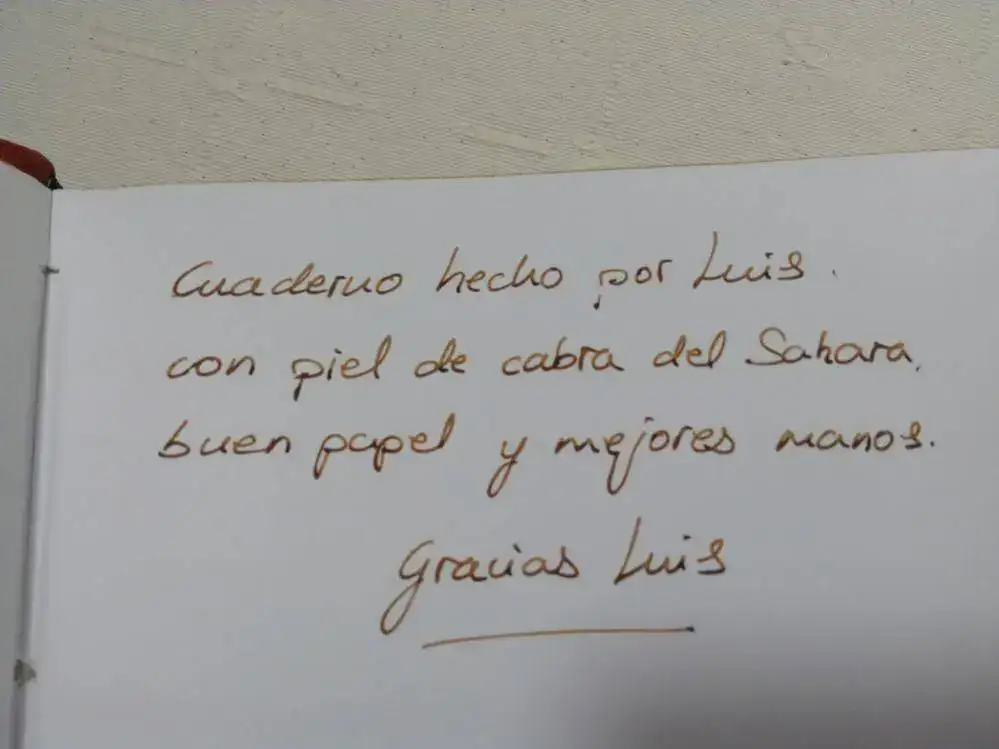 Cuaderno hecho por Luis.
con piel de cabra del Sahara,
buen papel y mejores manos.
Gracias Luis